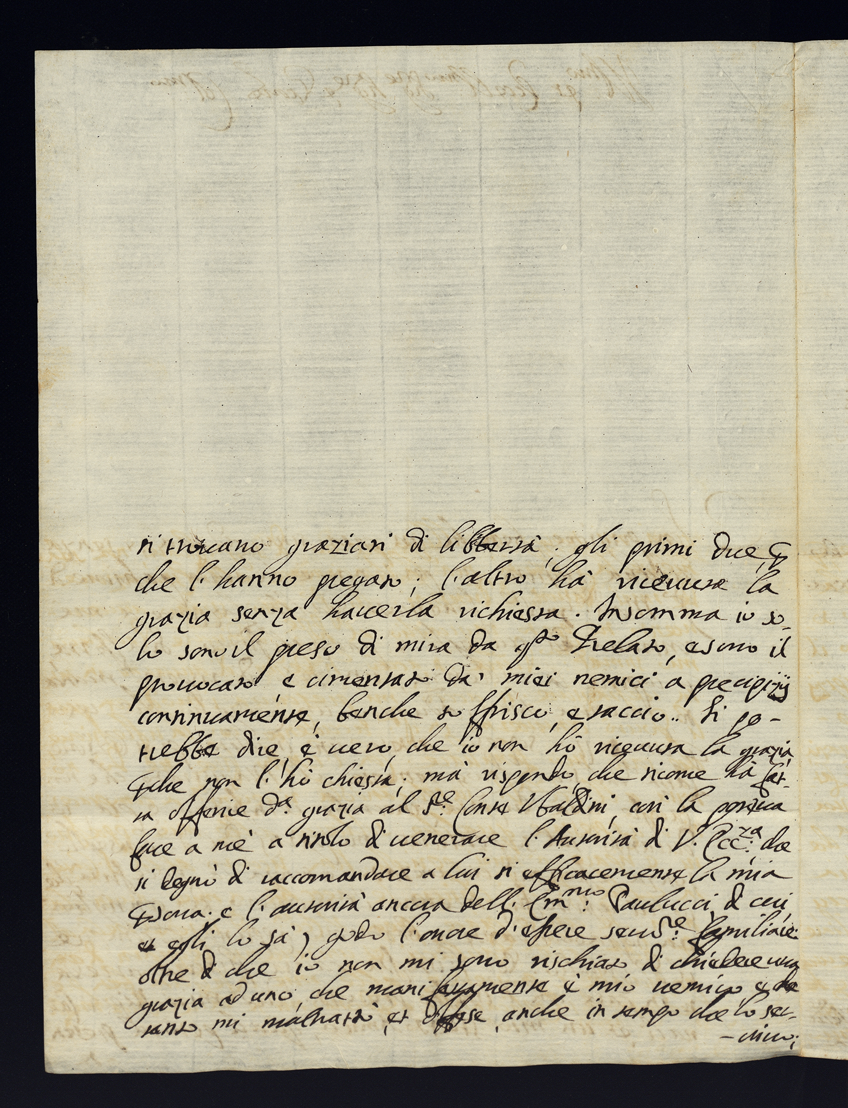 si trovano graziati di libbertà; gli primi due, p
che l'hanno pregato; l'altro hà ricevuta la
grazia senza haverla richiesta. Insomma io so-
lo sono il preso di mira da qsto Prelato, e sono il
provocato, e cimentato da' miei nemici a precipizij
continuamente, benche soffrisco, e taccio. Si po-
trebbe dire, è vero, che io non hò ricevuta la grazia
pche non l'hò chiesta; mà rispondo, che sicome hà fat-
ta offerire da grazia al Sre Conte Ubaldini, così la poteva
fare a mè a titolo di venerare l'Autorità di V. Eccza che
si degnò di raccomandare a lui sì efficacemente la mia
psona. e l'autorità ancora dell' Emmo Paulucci, di cui,
et egli lo sà, godo l'onore d'essere servre familiare
oltre di che io non mi sono rischiato di chiedere una
grazia ad uno, che manifestamente è mio nemico e che
tanto mi maltrattò, et offese, anche in tempo che lo ser-
-vivo;